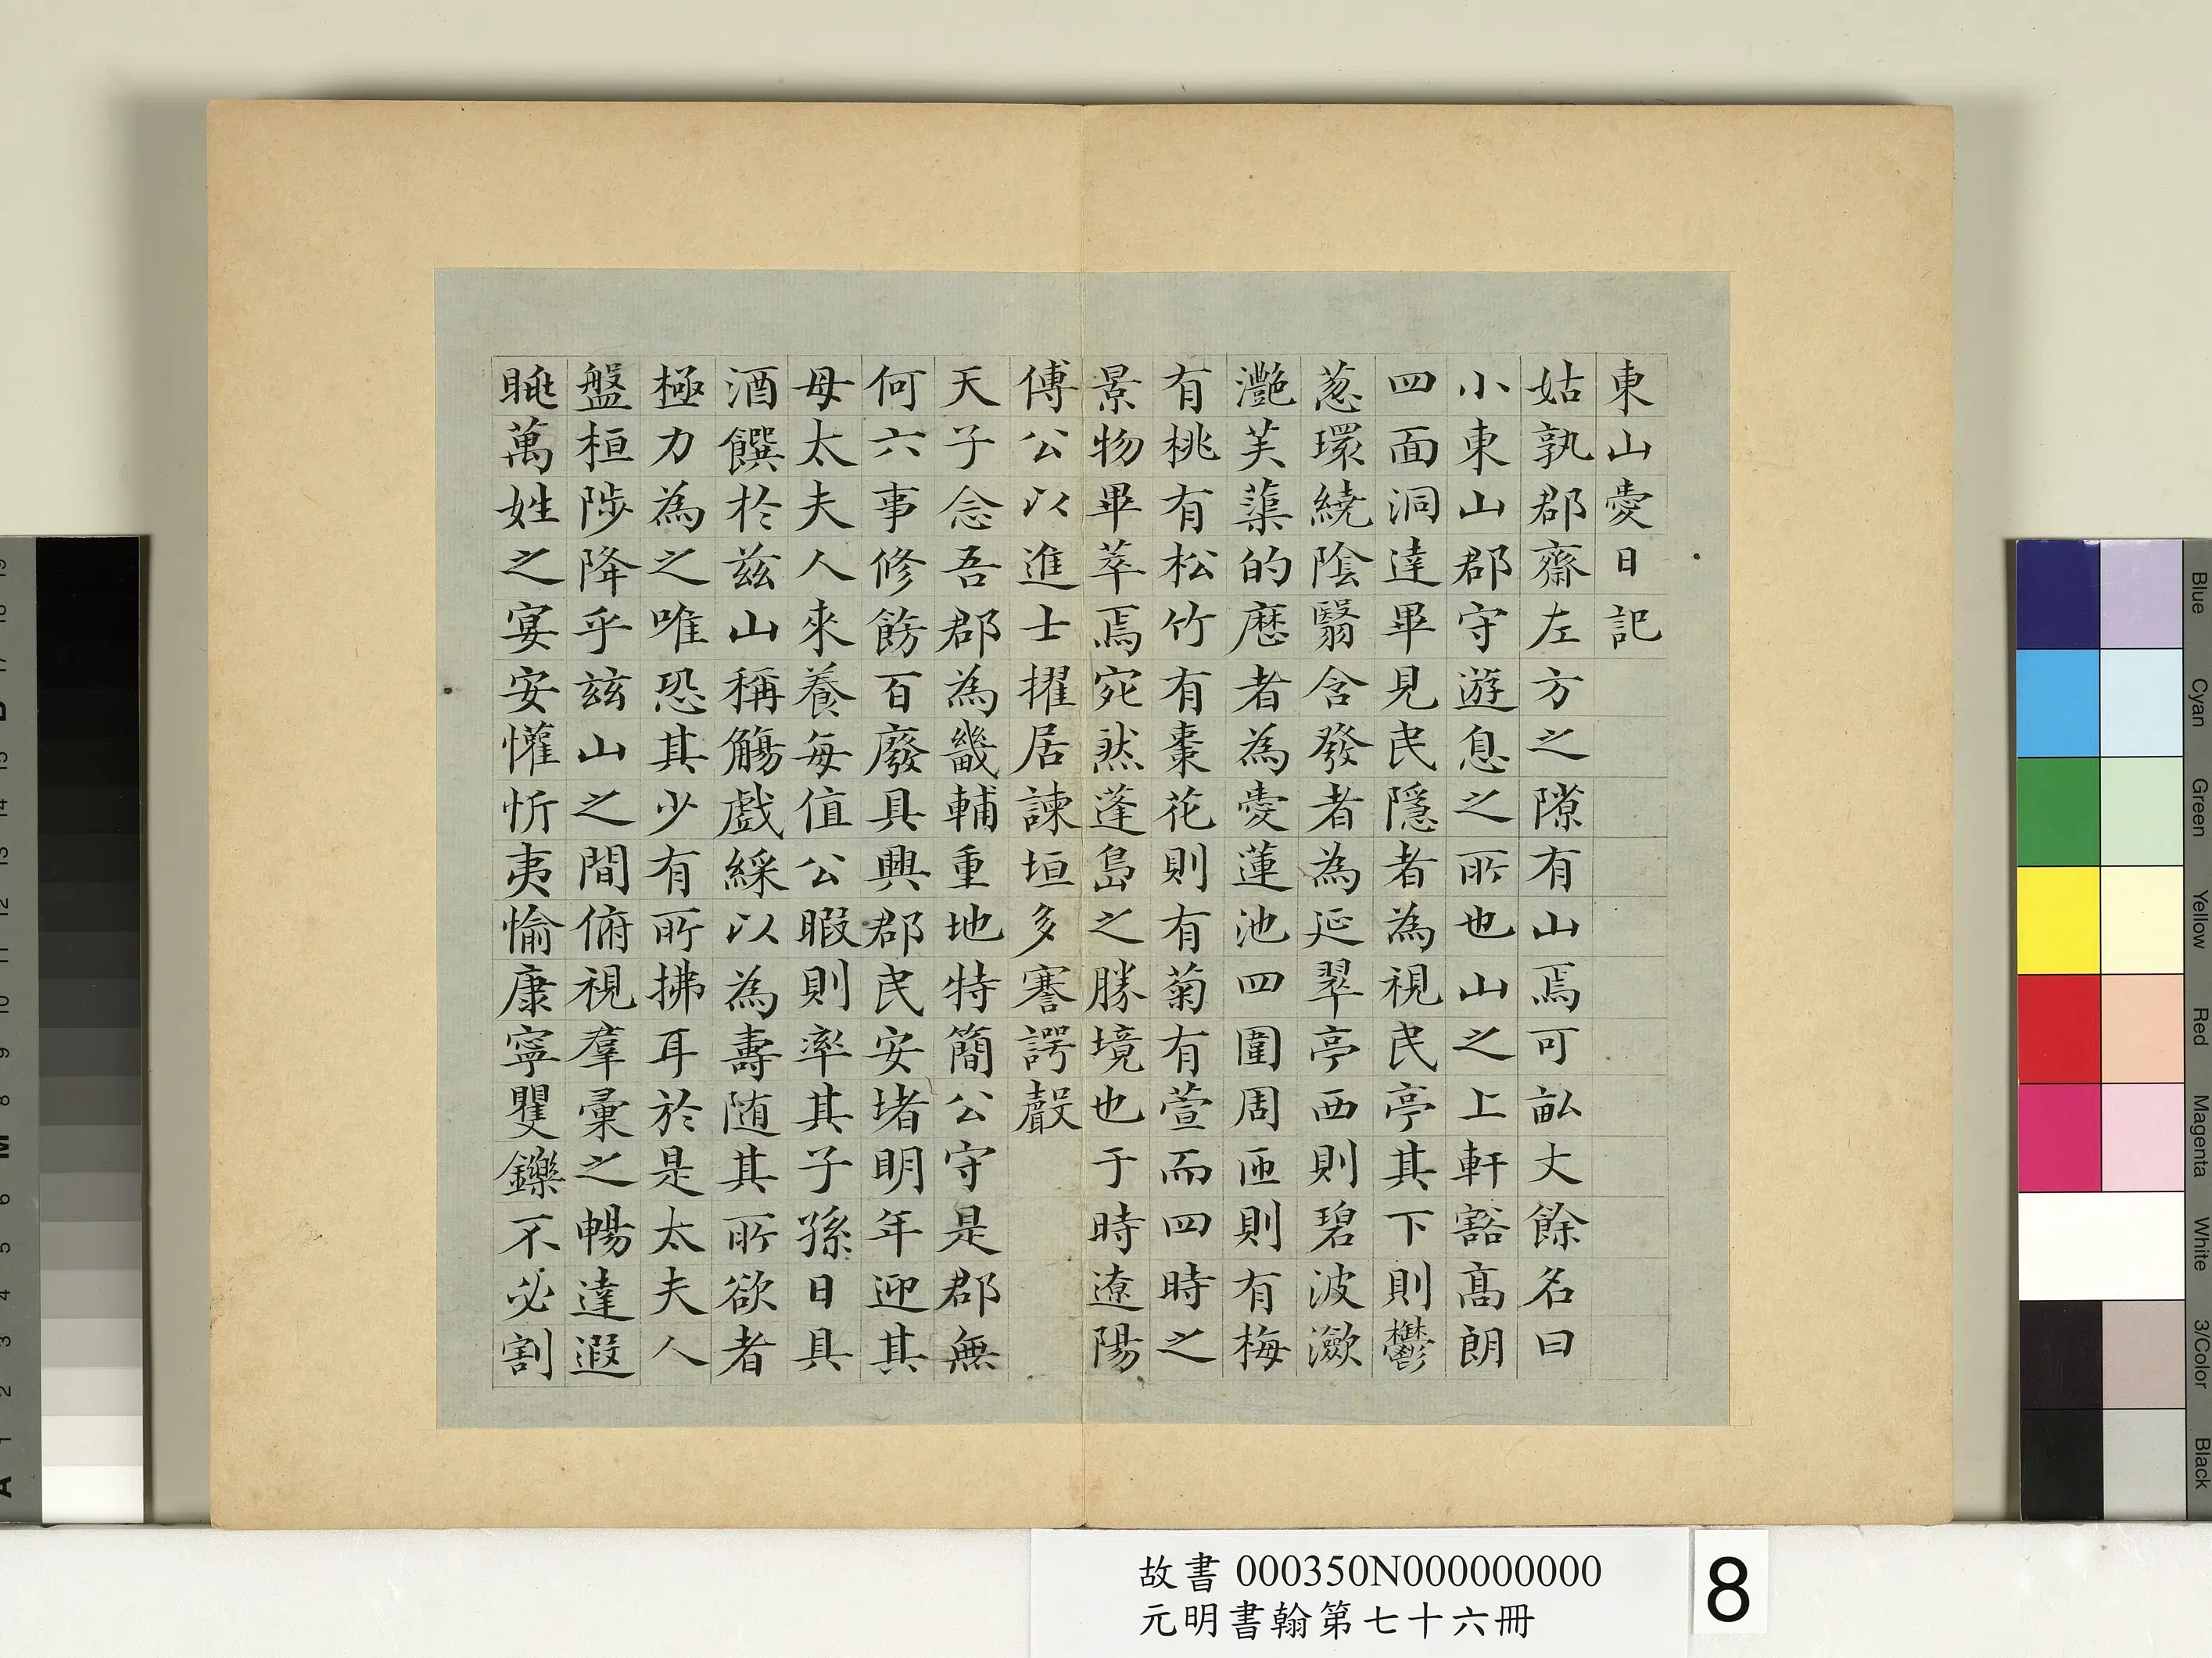 東山愛日記
姑孰郡齋左方之隙有山焉可畝丈餘名曰
小東山郡守遊息之所也山之上軒豁高朗
四面洞達畢見民隱者為視民亭其下則鬱
葱環繞陰翳含發者為延翠亭西則碧波瀲
灧芙蕖的歷者為愛蓮池四圍周匝則有梅
有桃有松竹有棗花則有菊有萱而四時之
景物畢萃焉宛然蓬島之勝境也于時遼陽
傅公以進士擢居諫垣多謇諤聲
天子念吾郡為畿輔重地特簡公守是郡無
何六事修飭百廢具興郡民安堵明年迎其
母太夫人來養每值公暇則率其子孫日具
酒饌於兹山稱觴戲綵以為壽随其所欲者
極力為之唯恐其少有所拂耳於是太夫人
盤桓陟降乎兹山之間俯視羣彙之暢達遐
眺萬姓之宴安懽忻夷愉康寧矍鑠不必割
故書 000350N000000000
元明書翰第七十六冊
8
Blue
Cyan
Green
Yellow
Red
Magenta
White
3/Color
Black
19
17
B
15
14
13
12
11
10
9
8
M
6
5
4
3
2
1
A